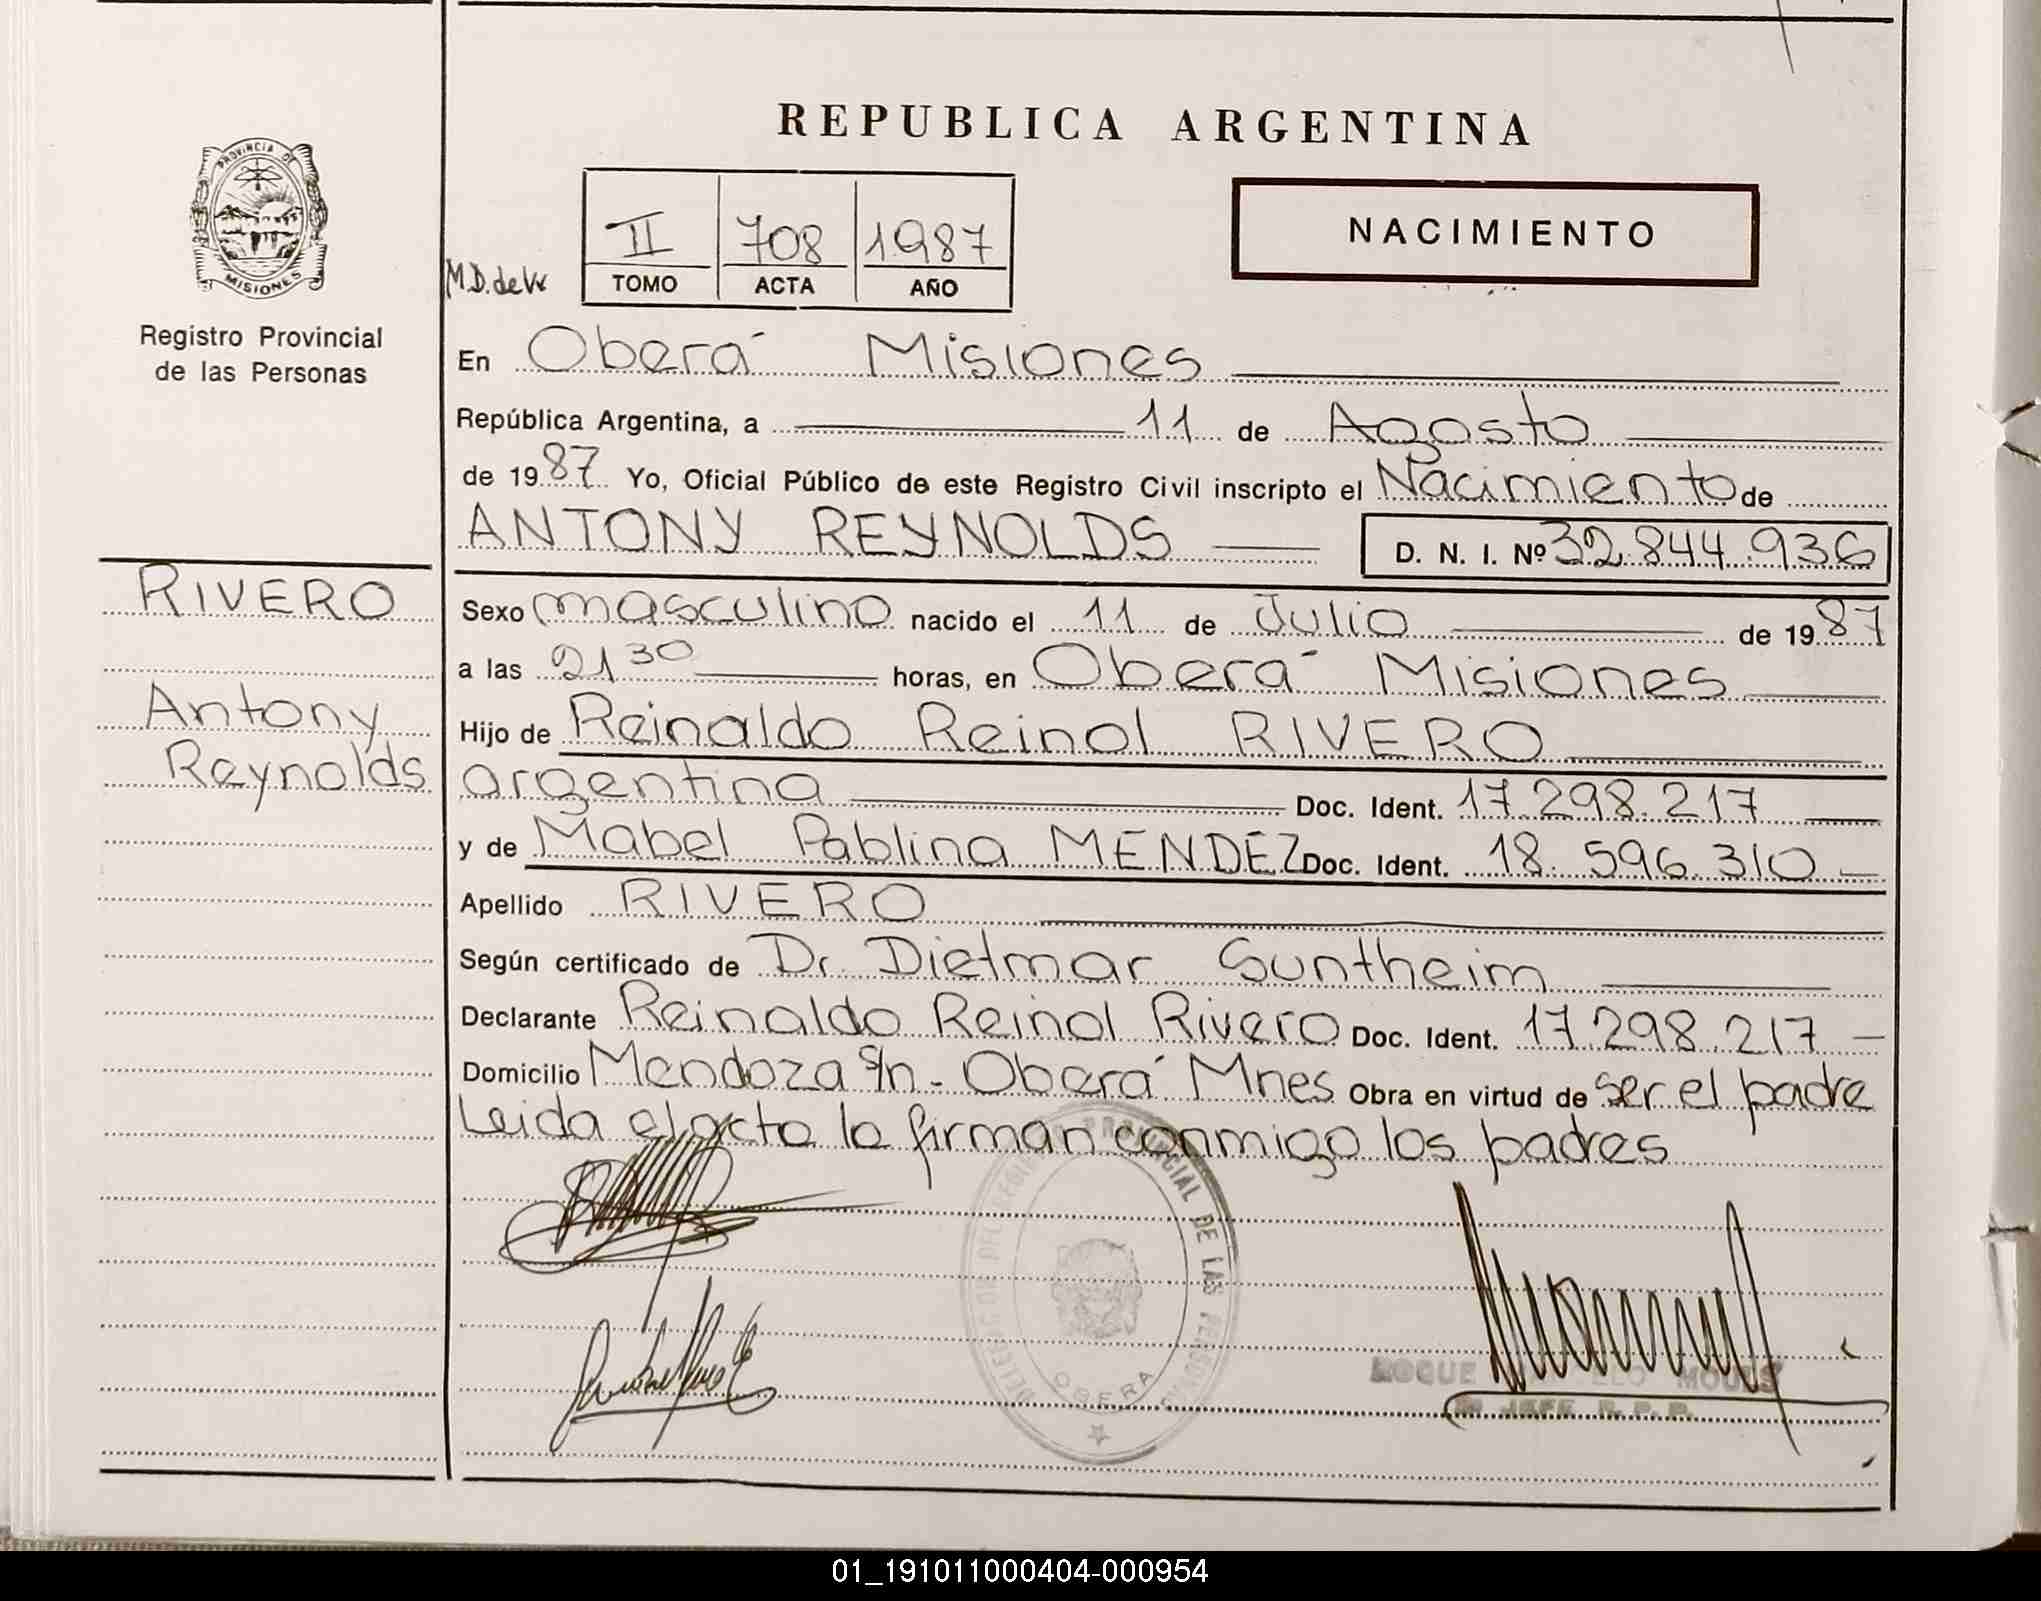 REPUBLICA ARGENTINA
PROVINCIA DE MISIONES
II 708 1987
TOMO ACTA AÑO
NACIMIENTO
M.D. de W
Registro Provincial
de las Personas
RIVERO
Antony
Reynolds
En Oberá Misiones
República Argentina, a 11 de Agosto
de 1987 Yo, Oficial Público de este Registro Civil inscripto el Nacimiento de
ANTONY REYNOLDS D. N. I. Nº 32.844.936
Sexo masculino nacido el 11 de Julio de 1987
a las 21 30 horas, en Oberá Misiones
Hijo de Reinaldo Reinol RIVERO
argentina Doc. Ident. 17.298.217
y de Mabel Pablina MENDEZ Doc. Ident. 18.596.310
Apellido RIVERO
Según certificado de Dr. Dietmar Suntheim
Declarante Reinaldo Reinol Rivero Doc. Ident. 17.298.217
Domicilio Mendoza s/n - Oberá Mnes Obra en virtud de ser el padre
Leida el acta la firman conmigo los padres
PROVINCIAL DE LAS PERSONAS
OBERA
ROQUE
JEFE R.P.P.
01_191011000404-000954